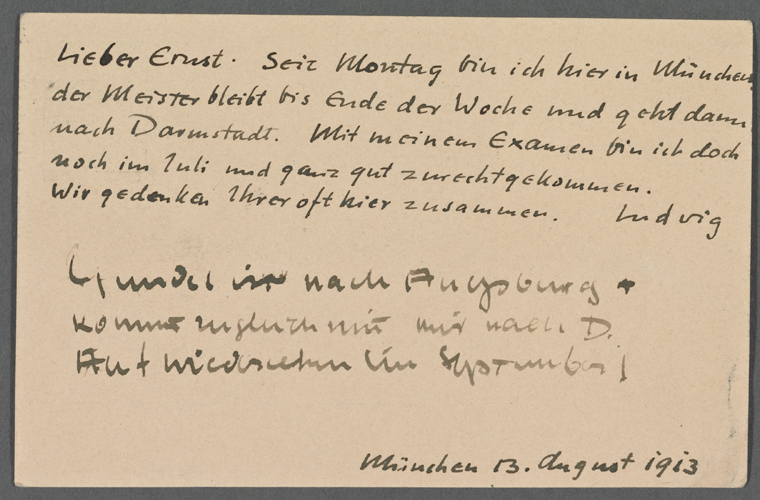 Lieber Ernst. Seit Montag bin ich hier in München,
der Meister bleibt bis Ende der Woche und geht dann
nach Darmstadt. Mit meinem Examen bin ich doch
noch im Juli und ganz gut zurechtgekommen.
Wir gedenken Ihrer oft hier zusammen. Ludwig
Gundel ist nach Augsburg +
kommt zugleich mit mir nach D.
Auf wiedersehn im September!
München 13. August 1913